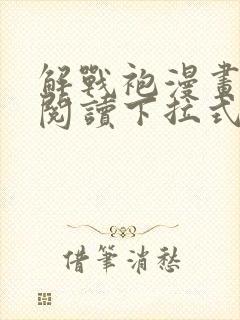 解戰袍漫畫
閱讀下拉式
借筆消愁